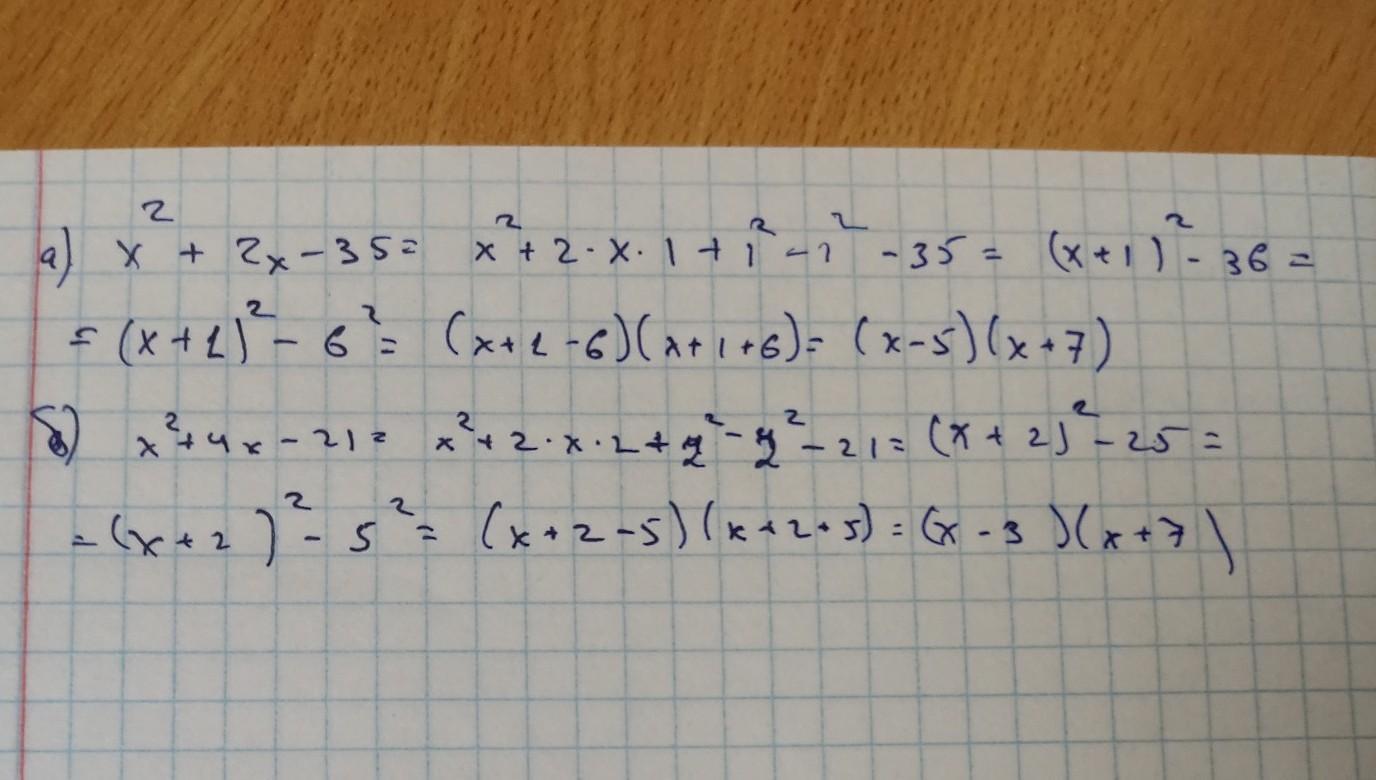 а) x² + 2x - 35 = x² + 2 · x · 1 + 1² - 1² - 35 = (x + 1)² - 36 =
= (x + 1)² - 6² = (x + 1 - 6)(x + 1 + 6) = (x - 5)(x + 7)
б) x² + 4x - 21 = x² + 2 · x · 2 + 2² - 2² - 21 = (x + 2)² - 25 =
= (x + 2)² - 5² = (x + 2 - 5)(x + 2 + 5) = (x - 3)(x + 7)